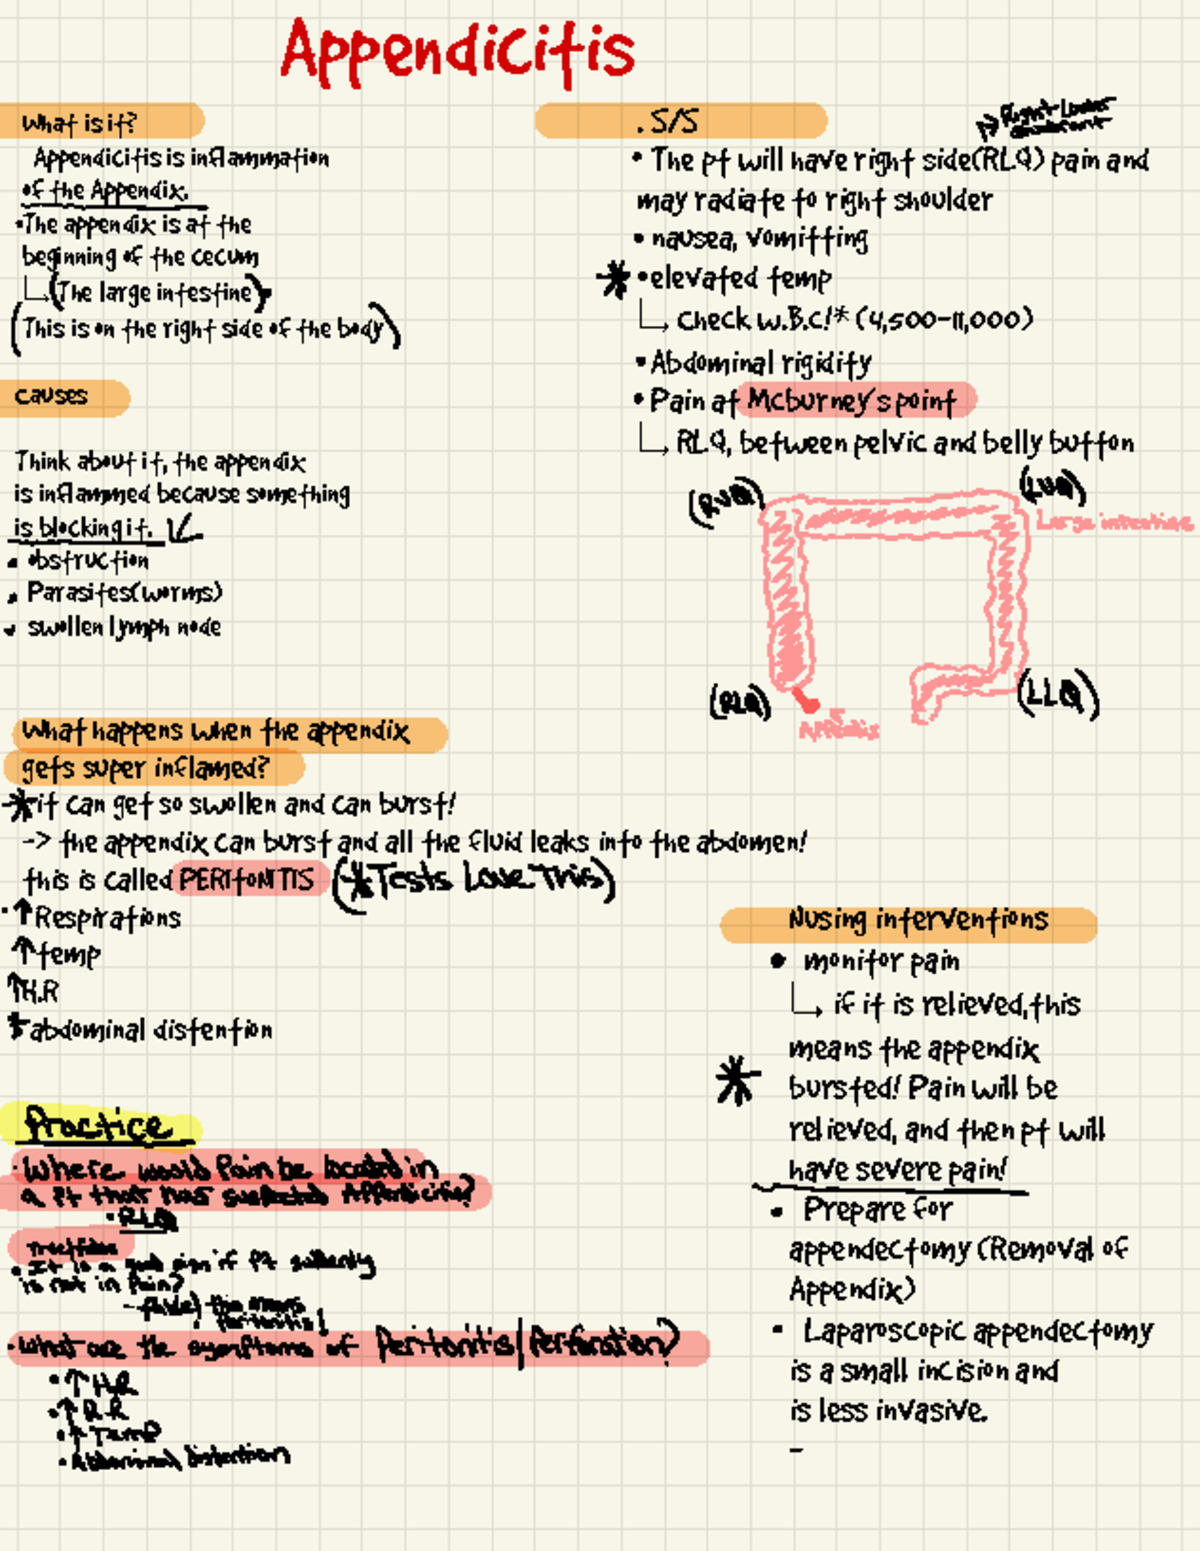 Appendicitis
What is it?
Appendicitis is inflammation
of the Appendix.
•The appendix is at the
beginning of the cecum
(The large intestine)
(This is on the right side of the body)
causes
Think about it, the appendix
is inflammed because something
is blocking it.
• obstruction
• Parasites(worms)
• swollen lymph node
What happens when the appendix
gets super inflamed?
*it can get so swollen and can burst!
-> the appendix can burst and all the fluid leaks into the abdomen!
this is called PERItoNITIS (*Tests Love This)
•↑Respirations
↑temp
↑H.R
*abdominal distention
Practice
•Where would Pain be located in
a Pt that has suspected Appendicitis?
•RLQ
True/false
• It is a good sign if Pt suddenly
is not in Pain?
-false! this means
Peritonitis!
•What are the symptoms of Peritonitis/Perforation?
•↑ HR
•↑ RR
•↑ Temp
•Abdominal Distention
.S/S
→ Right Lower
Quadrant
• The pt will have right side(RLQ) pain and
may radiate to right shoulder
• nausea, vomitting
* •elevated temp
↳ check W.B.C!* (4,500-11,000)
• Abdominal rigidity
• Pain at Mcburney's point
↳ RLQ, between pelvic and belly button
(RUQ)
(LUQ)
Large intestine
(RLQ)
(LLQ)
Nusing interventions
• monitor pain
↳ if it is relieved,this
means the appendix
* bursted! Pain will be
relieved, and then pt will
have severe pain!
• Prepare for
appendectomy (Removal of
Appendix)
- Laparoscopic appendectomy
is a small incision and
is less invasive.
-